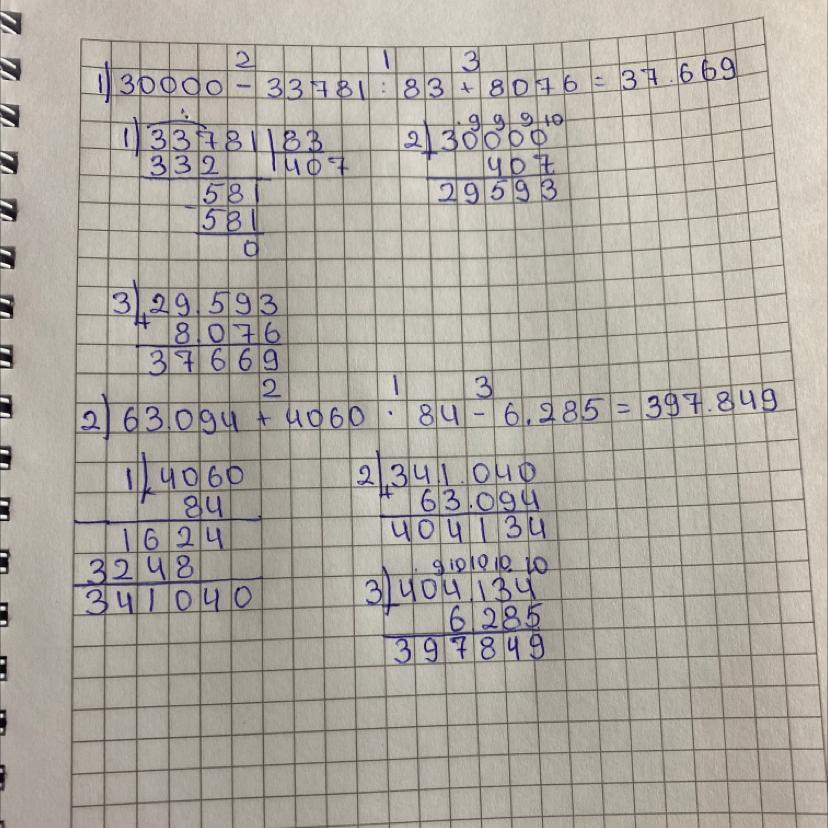 2 1 3
1) 30000 - 33781 : 83 + 8076 = 37.669
1) 33781 | 83
332 | 407
581
- 581
0
. 9 9 9 10
2) 30000
407
29593
3) 29.593
+ 8.076
37669
2 1 3
2) 63.094 + 4060 · 84 - 6.285 = 397.849
1) 4060
× 84
1624
3248
341040
2) 341.040
+ 63.094
404134
. 9 10 10 10 10
3) 404134
6285
397849